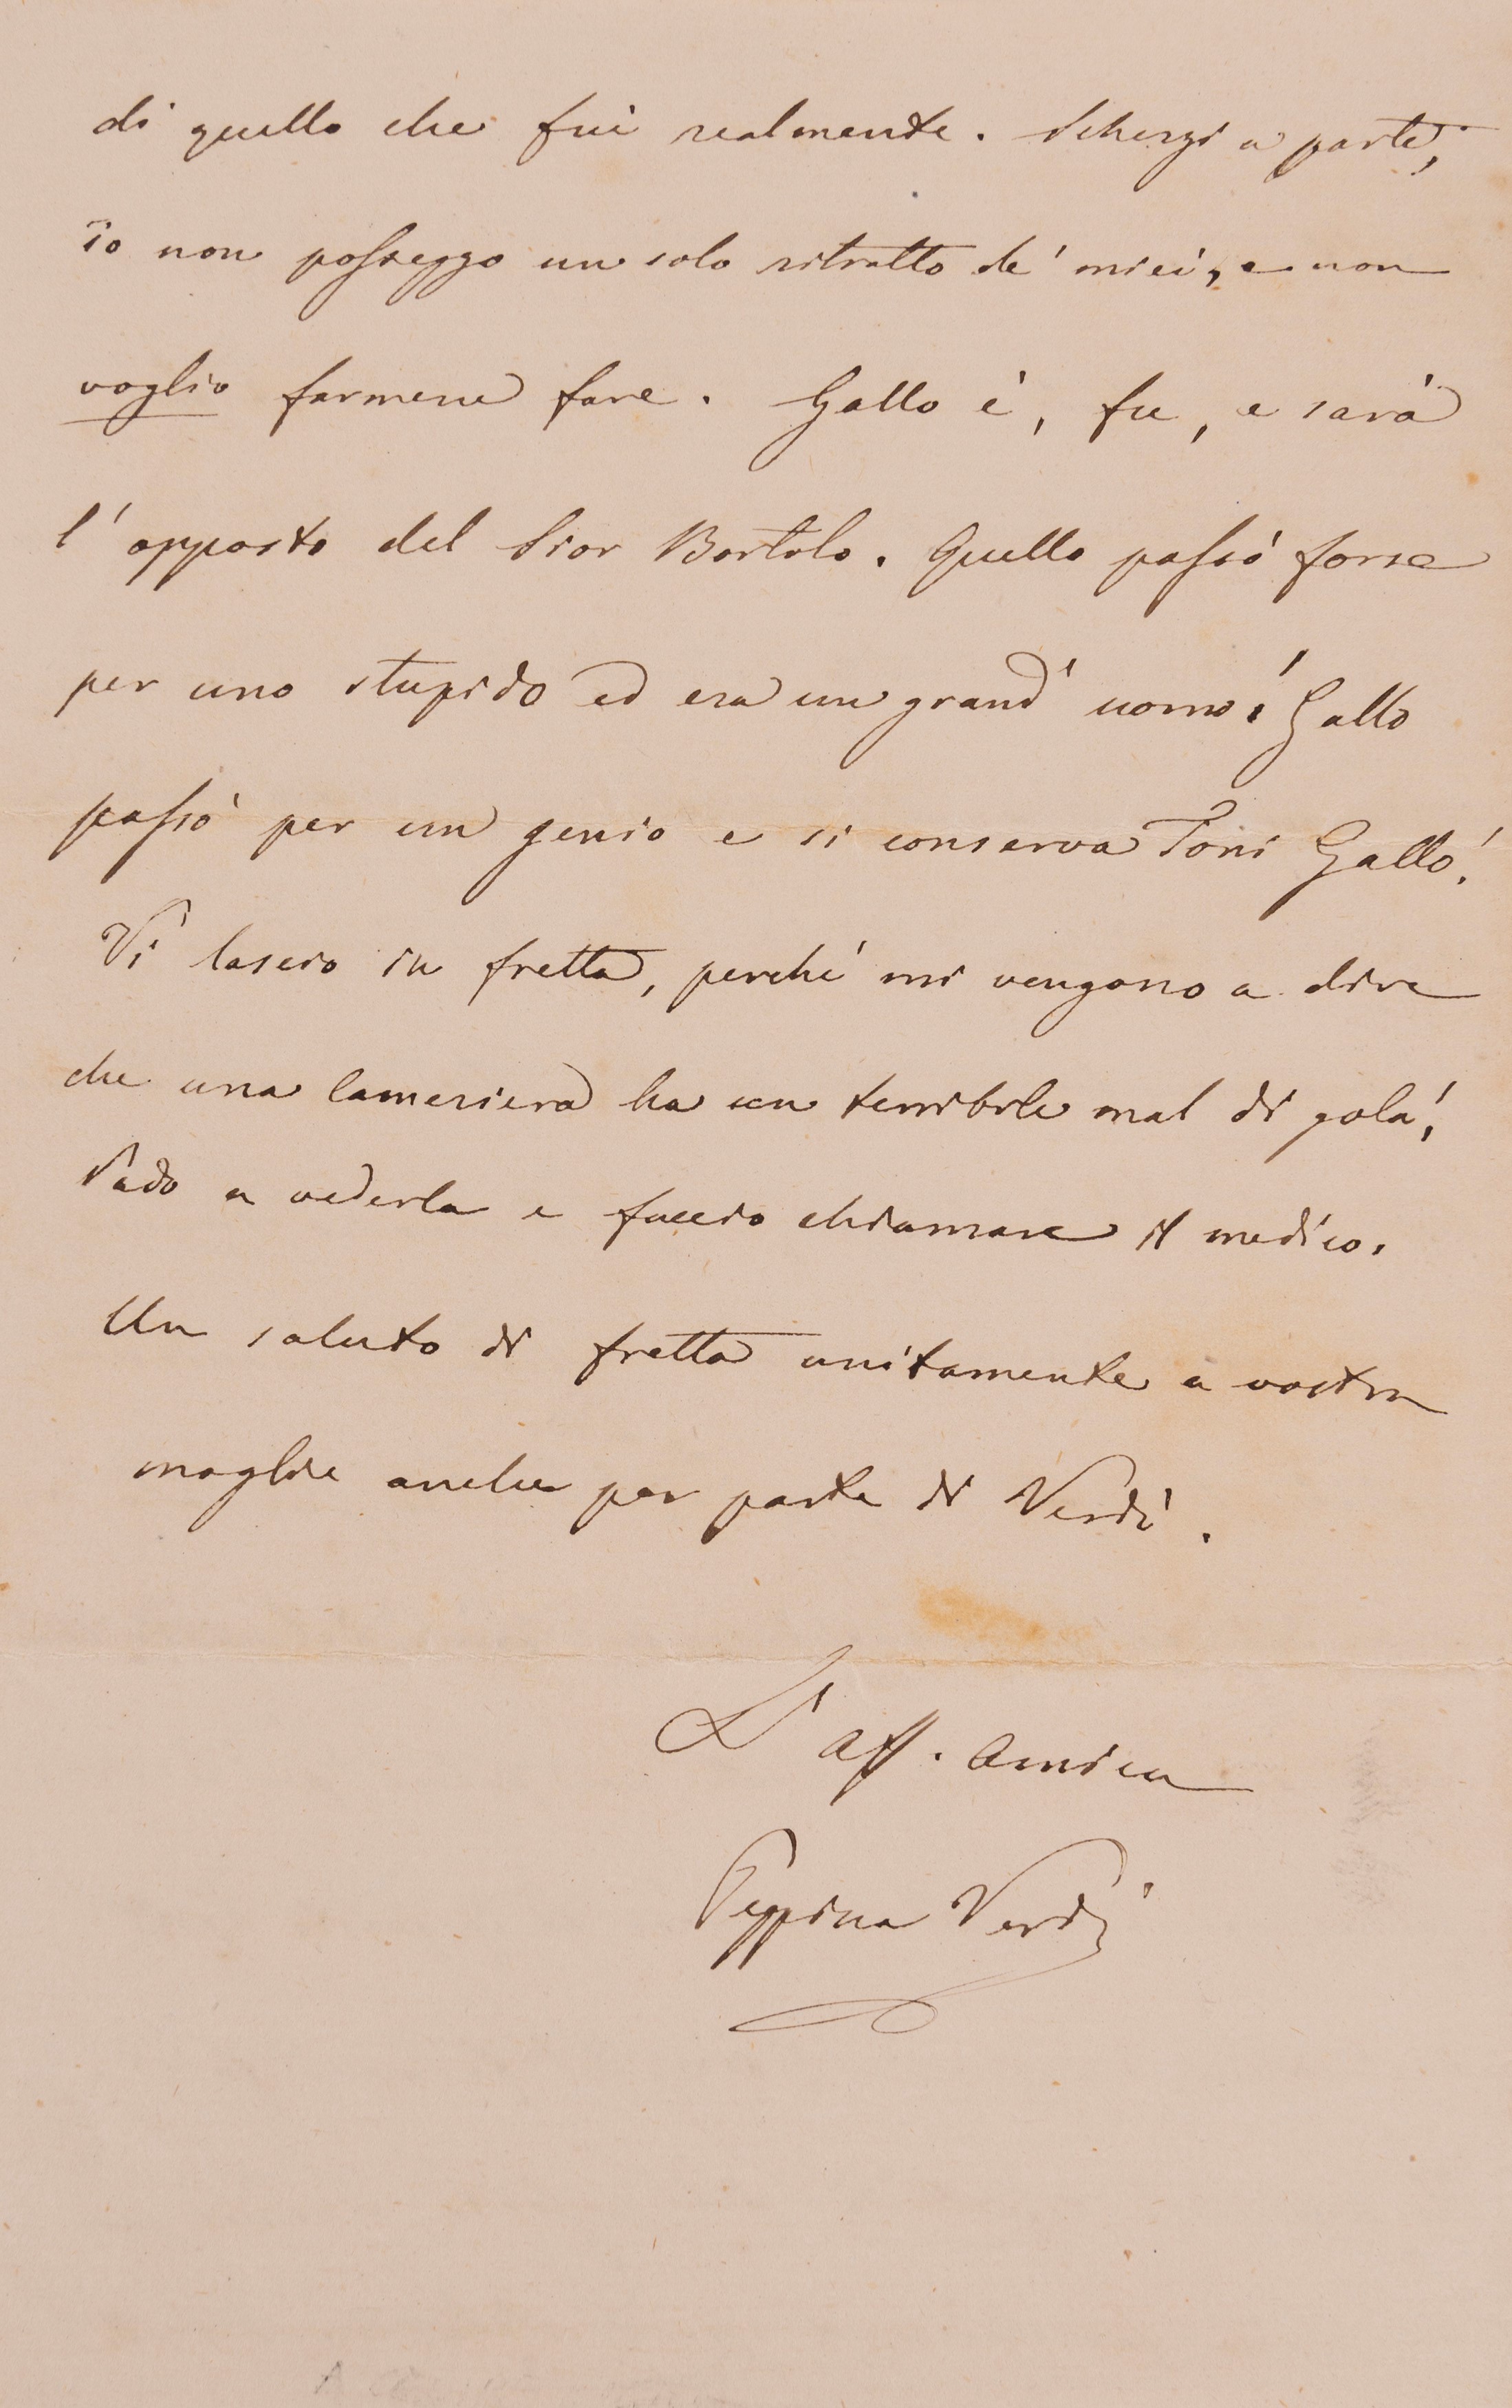 di quello che fui realmente. Scherzi a parte,
io non posseggo un solo ritratto de' miei, e non
voglio farmene fare. Gallo è, fu, e sarà
l'opposto del Sior Bortolo. Quello passò forse
per uno stupido ed era un grand'uomo! Gallo
passò per un genio e si conserva Toni Gallo!
Vi lascio in fretta, perché mi vengono a dire
che una cameriera ha un terribile mal di gola!
Vado a vederla e faccio chiamare il medico.
Un saluto di fretta unitamente a vostra
moglie anche per parte di Verdi.
L'aff. Amica
Peppina Verdi